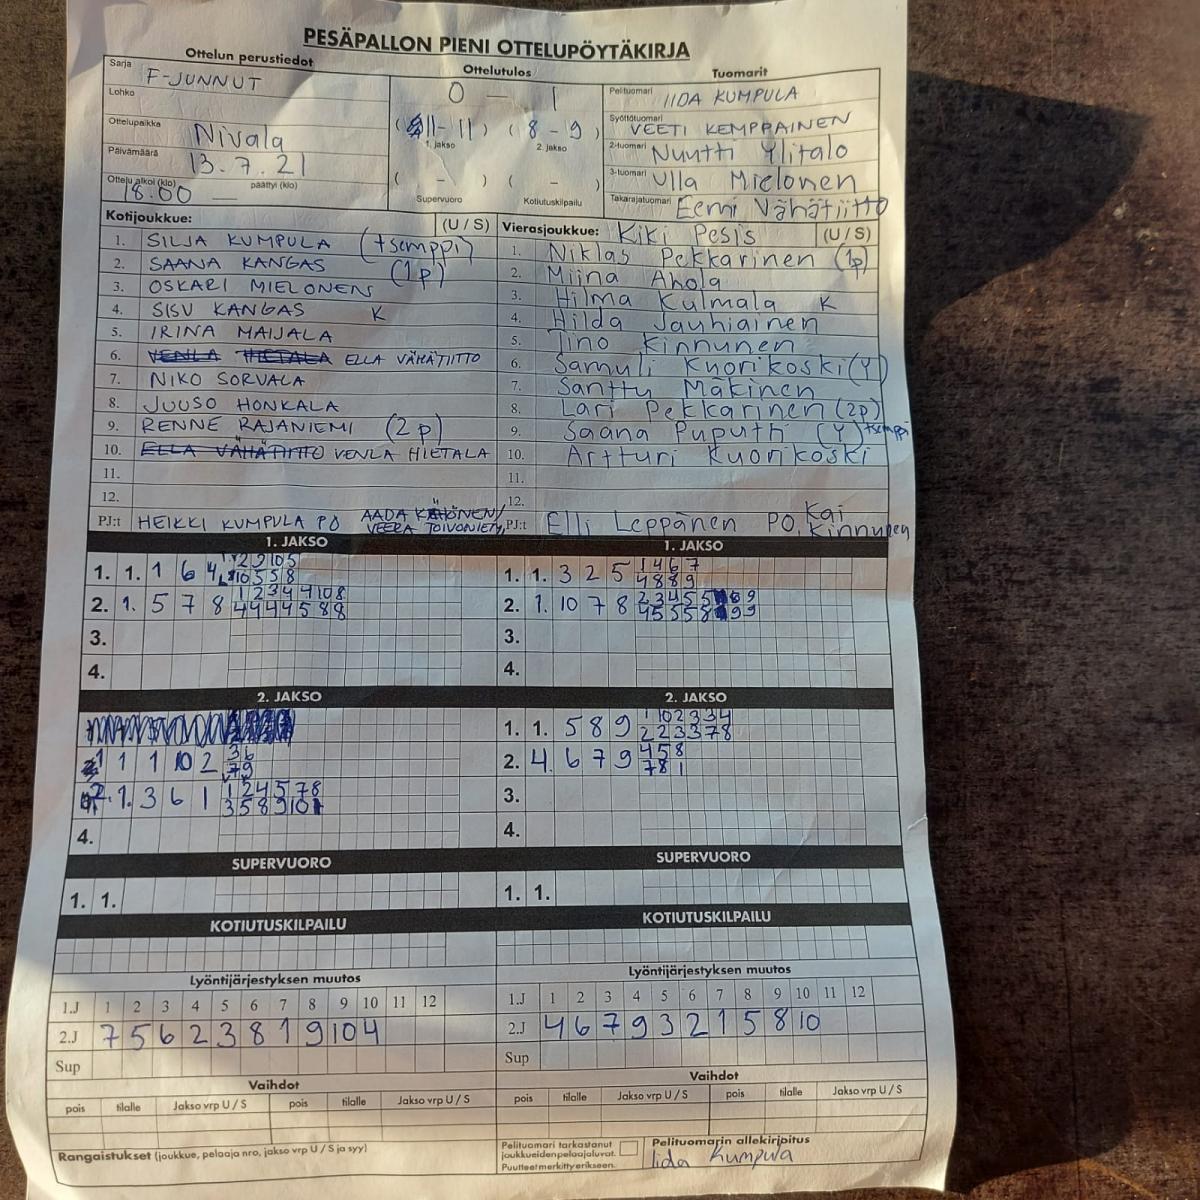 PESÄPALLON PIENI OTTELUPÖYTÄKIRJA
Ottelun perustiedot
Ottelutulos
Tuomarit
Sarja F-JUNNUT
Lohko
Ottelupaikka Nivala
Päivämäärä 13.7.21
Ottelu alkoi (klo) 18.00 päättyi (klo) —
0 — 1
(11-11) (8-9)
1. jakso 2. jakso
( - ) ( - )
Supervuoro Kotiutuskilpailu
Pelituomari IIDA KUMPULA
Syöttötuomari VEETI KEMPPAINEN
2-tuomari Nuutti Ylitalo
3-tuomari Ulla Mielonen
Takarajatuomari Eemi Vähätiitto
Kotijoukkue: (U / S)
1. SILJA KUMPULA (tsemppi)
2. SAANA KANGAS (1p)
3. OSKARI MIELONEN
4. SISU KANGAS K
5. IRINA MAIJALA
6. VENLA HIETALA ELLA VÄHÄTIITTO
7. NIKO SORVALA
8. JUUSO HONKALA
9. RENNE RAJANIEMI (2p)
10. ELLA VÄHÄTIITTO VENLA HIETALA
11.
12.
PJ:t HEIKKI KUMPULA PO AADA KÄHÖNEN/
Vierasjoukkue: Kiki Pesis (U / S)
1. Niklas Pekkarinen (1p)
2. Miina Ahola
3. Hilma Kulmala K
4. Hilda Jauhiainen
5. Tino Kinnunen
6. Samuli Kuorikoski (Y)
7. Santtu Mäkinen
8. Lari Pekkarinen (2p)
9. Saana Puputti (Y) tsemppi
10. Artturi Kuorikoski
11.
12.
PJ:t Elli Leppänen PO, Kai Kinnunen
1. JAKSO
1. 1. 1 6 4
2. 1. 5 7 8 1 2 3 4 4 4 10 8
4 4 4 4 4 5 8 8
3.
4.
1. JAKSO
1. 1. 3 2 5 1 4 6 7
4 8 8 9
2. 1. 10 7 8
3.
4.
2. JAKSO
1 1 1 10 2 3 6
7 9
2. 1. 3 6 1 1 2 4 5 7 8
3 5 8 9 10 1
4.
2. JAKSO
1. 1. 5 8 9 1 10 2 3 3 4
2 2 3 3 7 8
2. 4. 6 7 9 4 5 8
7 8 1
3.
4.
SUPERVUORO
1. 1.
SUPERVUORO
1. 1.
KOTIUTUSKILPAILU
KOTIUTUSKILPAILU
Lyöntijärjestyksen muutos
1.J 1 2 3 4 5 6 7 8 9 10 11 12
2.J 7 5 6 2 3 8 1 9 10 4
Sup
Lyöntijärjestyksen muutos
1.J 1 2 3 4 5 6 7 8 9 10 11 12
2.J 4 6 7 9 3 2 1 5 8 10
Sup
Vaihdot
pois tilalle Jakso vrp U / S pois tilalle Jakso vrp U / S
Vaihdot
pois tilalle Jakso vrp U / S pois tilalle Jakso vrp U / S
Rangaistukset (joukkue, pelaaja nro, jakso vrp U / S ja syy)
Pelituomari tarkastanut
joukkueiden pelaajaluvat.
Puutteet merkitty erikseen.
Pelituomarin allekirjoitus
Iida Kumpula